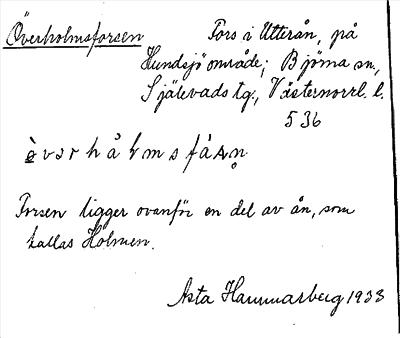 Överholmsforsen
Fors i Utterån, på
Hundsjö område; Björna sn.,
Själevads tg., Västernorrl. l.
536
Forsen ligger ovanför en del av ån, som
kallas Holmen.
Asta Hammarberg 1933